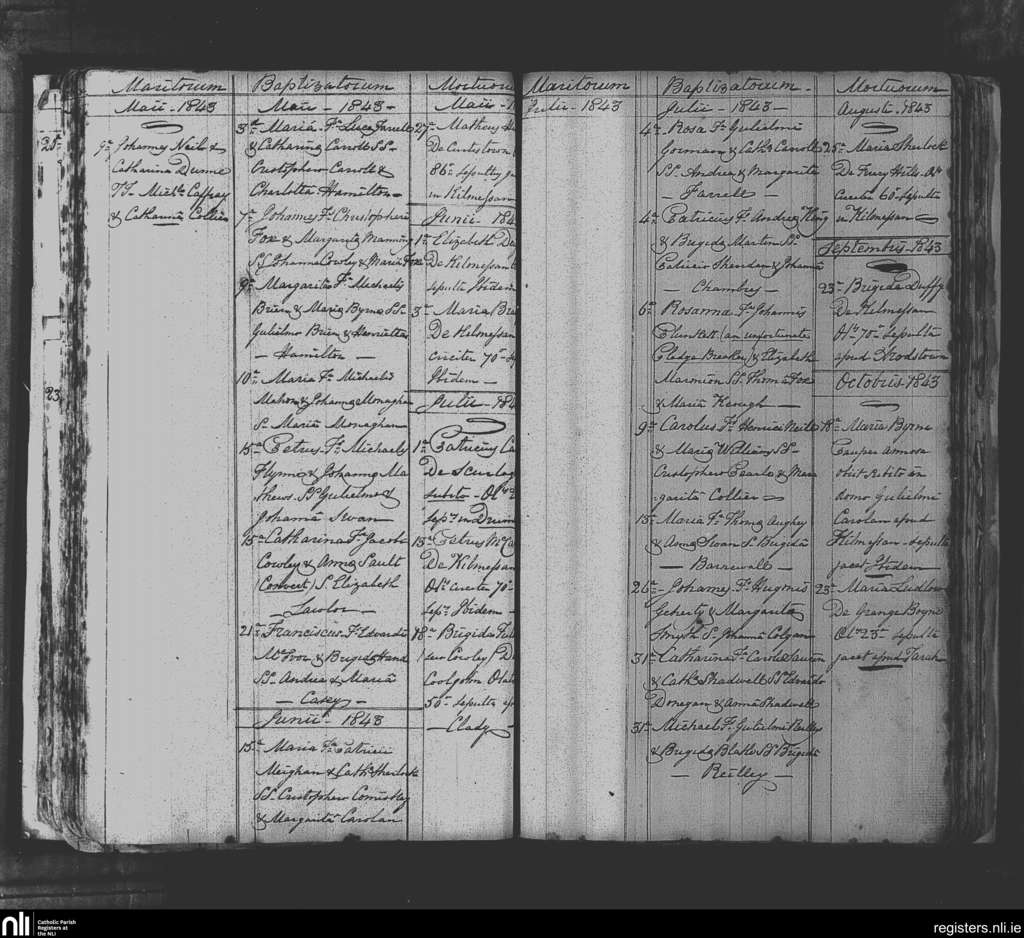 Maritorum
Maii - 1843
9a Johannes Neil &
Catharina Dunne
TT. Michle Caffray
& Catharina Collier
Baptizatorum
Maii - 1843 -
3a Maria Fa Luca Farrell
& Catharina Carroll SS.
Cristopher Carroll &
Charlotta Hamilton -
7a Johannes Fs Christopheri
Fox & Margarita Manning
SS Johanne Cowley & Maria Fox
9a Margarita Fa Michaelis
Brien & Maria Byrne SS.
Gulielmo Brien & Henrietta
- Hamilton -
10a Maria Fa Michaelis
Mahon & Johanna Monaghan
Sa Maria Monaghan
15a Petrus Fs Michaelis
Flynn & Johanna Ma
thews. SS Gulielmo &
Johanna Swan
15a Catharina Fa Jacobi
Cowley & Anna Sault
(Convert) S. Elizabeth
- Lawlor -
21a Franciscus Fs Edvardi
McIvor & Brigida Hand
SS. Andrea & Maria
- Casey -
Junii - 1843
15a Maria Fa Patricii
Meighan & Catha Sherlock
SS. Cristopher Comiskey
& Margarita Carolan
Mortuor
Maii - 1
27a Matheus
De Curtistown
86a sepultus
in Kilmessan
Junii - 184
1a Elizabeth
De Kilmessan
sepulta Ibidem
3a Maria
De Kilmessan
circiter 70a
Ibidem -
Julii - 184
1a Patricius
De Scurlog
subito - Ob
sepa in Drum
13a Petrus
De Kilmessan
Oba circiter 70a
sepa Ibidem -
18a Brigida
(seu Cowley) D
Coolgown
50a sepulta
- Clady -
Maritorum
Julii - 1843
Baptizatorum -
Julii - 1843 -
4a Rosa Fa Gulielmi
Gorman & Catha Carroll
SS. Andrea & Margarita
- Farrell -
4a Patricius Fs Andrea King
& Brigida Martin SS.
Patricio Sheridan & Johanna
- Chambres -
6a Rosanna Fa Johannis
Plunkett (an unfortunate
Pledge Breaker) & Elizabeth
Marmion SS. Thoma Fox
& Maria Keough -
9a Carolus Fs Henrici Neill
& Maria Williams SS.
Cristophero Searle & Mar
garita Collier
15a Maria Fa Thoma Aughy
& Anna Sloan S. Brigida
- Barrewall -
26a Johannes Fs Hugonis
Geherty & Margarita
Smyth S. Johanna Colgan
31a Catharina Fa Caroli
& Catha Shadwell SS. Edvardo
Donegan & Anna Shadwell
31a Michael Fs Gulielmi Reilly
& Brigida Blake SS. Brigida
- Reilly -
Mortuorum
Augusti. 1843
25a Maria Sherlock
De Fury Hill. Oba
circiter 60a sepulta
in Kilmessan
Septembris. 1843
23a Brigida Duffy
De Kilmessan
Oba 70a sepulta
apud Trodstown
Octobris. 1843
18a Maria Byrne
Pauper annosa
obiit subito in
domo Gulielmi
Carolan apud
Kilmessan - sepulta
jacet Ibidem
23a Maria Ludlow
De Grange Boyne
Oba 23a sepulta
jacet apud Tarah
25a
23
nli
Catholic Parish
Registers at
the NLI
registers.nli.ie